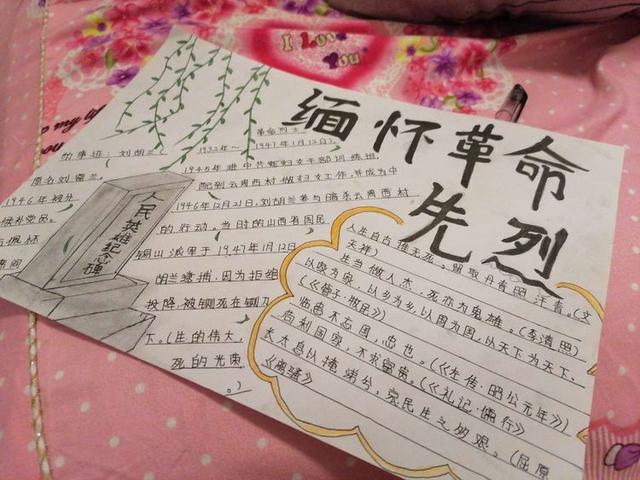 I Love
You
缅怀革命
先烈
革命烈士
的事迹：刘胡兰（1932年～1947年1月12日），
原名刘富兰。1945年进中共妇女干部训练班，
1946年被分配到云周西村做妇女工作，并成为中
候补党员。1946年12月21日，刘胡兰参与暗杀云周西村
的行动。当时的山西省国民
派军于1947年1月12日
胡兰逮捕，因为拒绝
投降，被铡死在铡刀
下。（生的伟大，
死的光荣
。）
人民英雄纪念碑
人生自古谁无死，留取丹青照汗青。（文
天祥）
生当做人杰，死亦为鬼雄。（李清照）
以家为家，以乡为乡，以国为国，以天下为天下。
（《管子·牧民》）
临患不忘国，忠也。（《左传·昭公元年》）
苟利国家，不求富贵。（《礼记·儒行》）
长太息以掩涕兮，哀民生之多艰。（屈原
《离骚》）